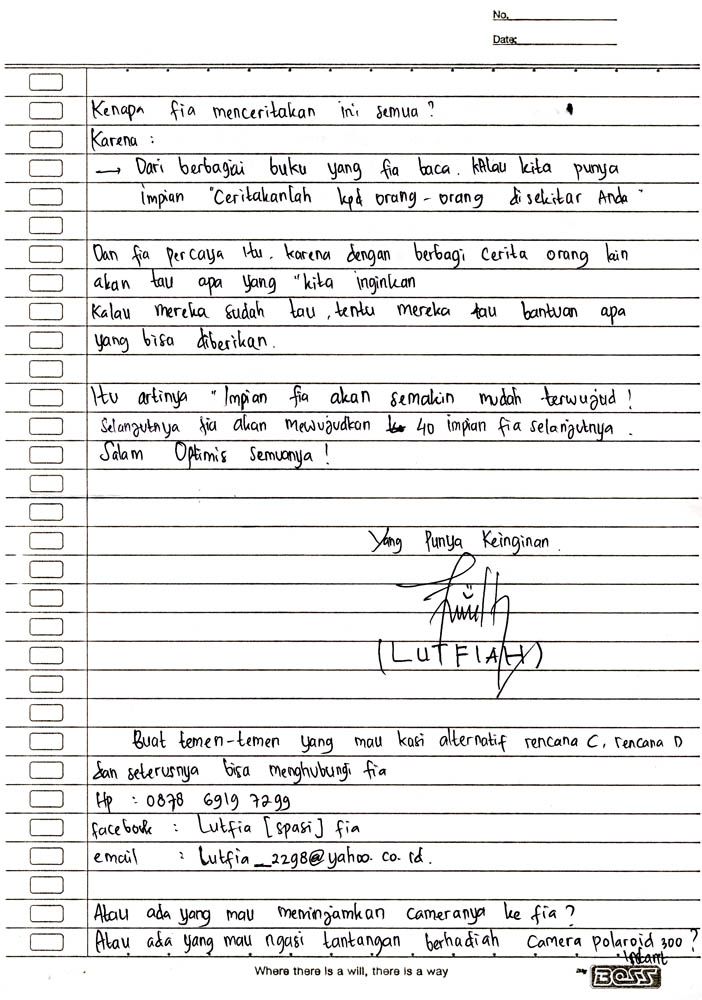 No.
Date:
Kenapa fia menceritakan ini semua?
Karena :
→ Dari berbagai buku yang fia baca. kalau kita punya
impian "Ceritakanlah kpd orang-orang disekitar Anda"
Dan fia percaya itu. karena dengan berbagi cerita orang lain
akan tau apa yang "kita inginkan
Kalau mereka sudah tau, tentu mereka tau bantuan apa
yang bisa diberikan.
Itu artinya "Impian fia akan semakin mudah terwujud!
Selanjutnya fia akan mewujudkan 40 impian fia selanjutnya.
Salam Optimis semuanya!
Yang Punya Keinginan.
(LUTFIAH)
Buat temen-temen yang mau kasi alternatif rencana C, rencana D
dan seterusnya bisa menghubungi fia
Hp : 0878 6919 7299
facebook : Lutfia [spasi] fia
email : Lutfia_2298@yahoo.co.id.
Atau ada yang mau meminjamkan cameranya ke fia?
Atau ada yang mau ngasi tantangan berhadiah Camera polaroid 300?
Instant
Where there is a will, there is a way
BOSS